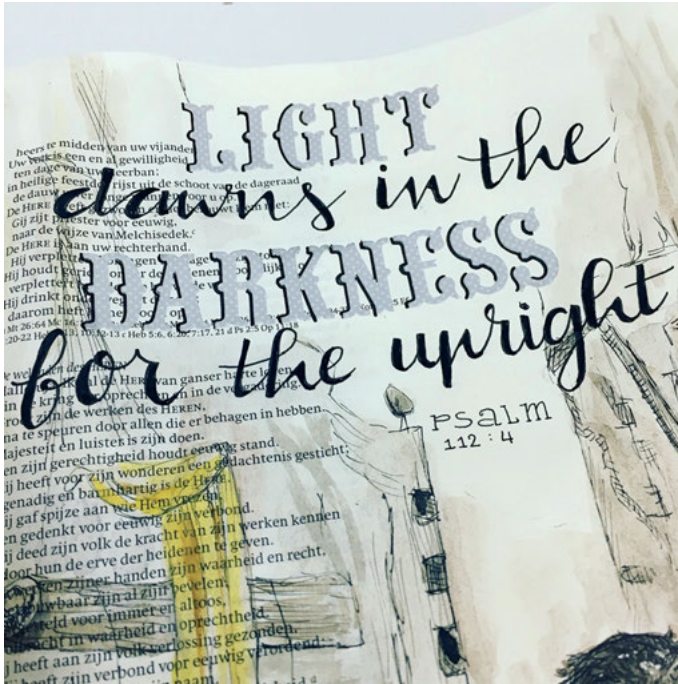 LIGHT
dawns in the
DARKNESS
for the upright
PSALM
112:4
heers te midden van uw vijanden
Uw volk is een en al gewilligheid
ten dage van uw heerban;
in heilige feestdos rijst uit de schoot van de dageraad
de dauw
De HERE
Gij zijt priester voor eeuwig,
naar de wijze van Melchisedek.
De HERE is aan uw rechterhand.
Hij
Hij houdt
Hij drinkt
daarom heft
van ganser harte
in kring oprechten en in de
zijn de werken des HEREN,
na te speuren door allen die er behagen in hebben.
majesteit en luister is zijn doen.
en zijn gerechtigheid houdt eeuwig stand.
ij heeft voor zijn wonderen een gedachtenis gesticht;
genadig en barmhartig is de HERE.
ij gaf spijze aan wie Hem vrezen,
n gedenkt voor eeuwig zijn verbond.
ij deed zijn volk de kracht van zijn werken kennen
door hun de erve der heidenen te geven.
zijner handen zijn waarheid en recht,
uwbaar zijn al zijn bevelen,
voor immer en altoos,
in waarheid en oprechtheid.
j heeft aan zijn volk verlossing gezonden,
heeft zijn verbond voor eeuwig verordend;
naam.